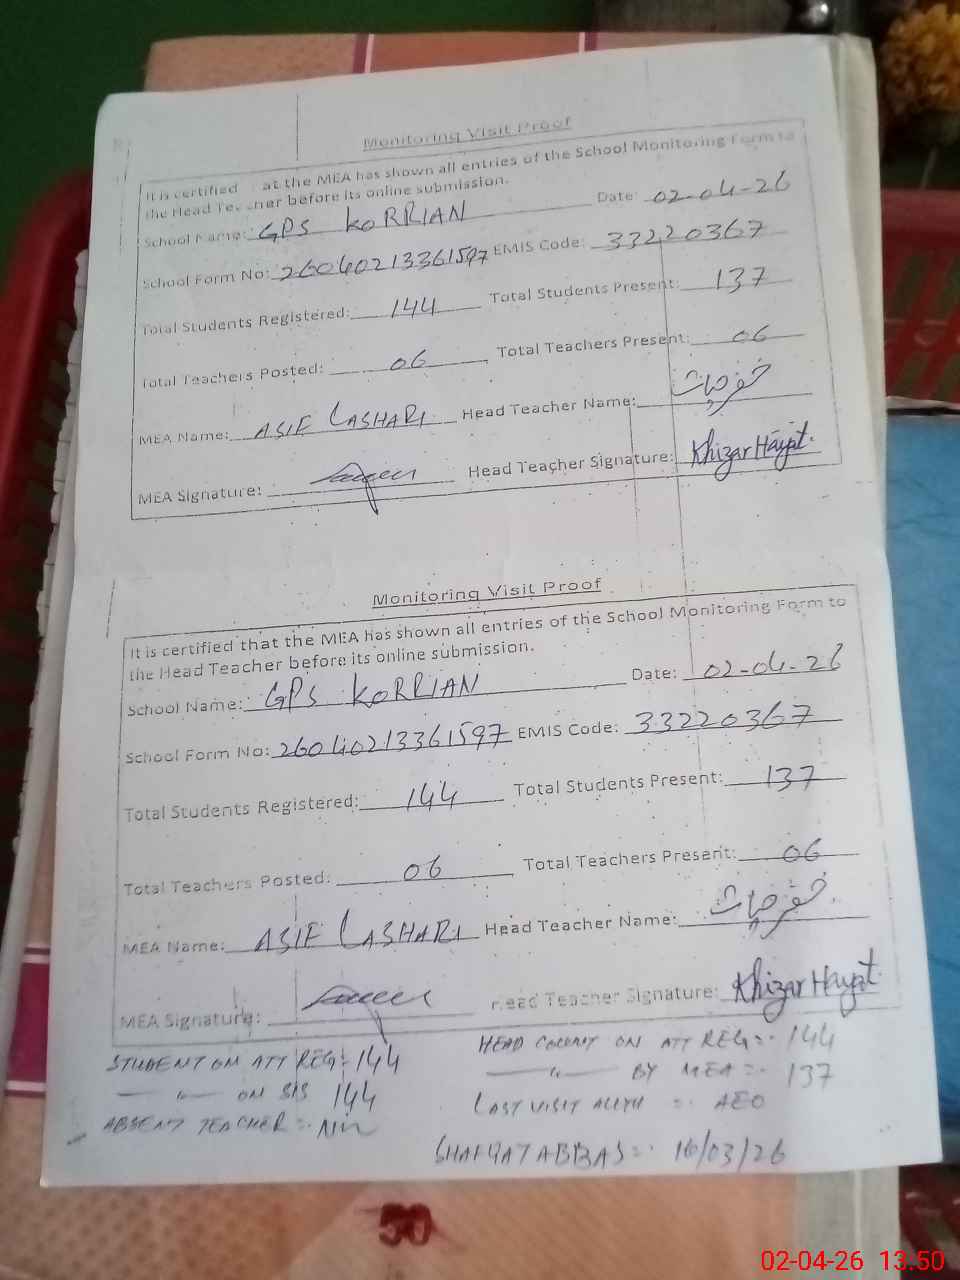 Monitoring Visit Proof
It is certified at the MEA has shown all entries of the School Monitoring Form to
the Head Teacher before its online submission.
School Name: GPS KORRIAN Date: 02-04-26
School Form No: 26040213361597 EMIS Code: 33220367
Total Students Registered: 144 Total Students Present: 137
Total Teachers Posted: 06 Total Teachers Present: 06
MEA Name: ASIF LASHARI Head Teacher Name: خضر حیات
MEA Signature: Head Teacher Signature: Khizar Hayat.
Monitoring Visit Proof
It is certified that the MEA has shown all entries of the School Monitoring Form to
the Head Teacher before its online submission.
School Name: GPS KORRIAN Date: 02-04-26
School Form No: 26040213361597 EMIS Code: 33220367
Total Students Registered: 144 Total Students Present: 137
Total Teachers Posted: 06 Total Teachers Present: 06
MEA Name: ASIF LASHARI Head Teacher Name: خضر حیات
MEA Signature: Head Teacher Signature: Khizar Hayat.
STUDENT ON ATT REG:- 144 HEAD COUNT ON ATT REG:- 144
—〃— ON SIS 144 —〃— BY MEA:- 137
ABSENT TEACHER:- Nil LAST VISIT :- AEO
SHAFQAT ABBAS:- 16/03/26
50
02-04-26 13:50